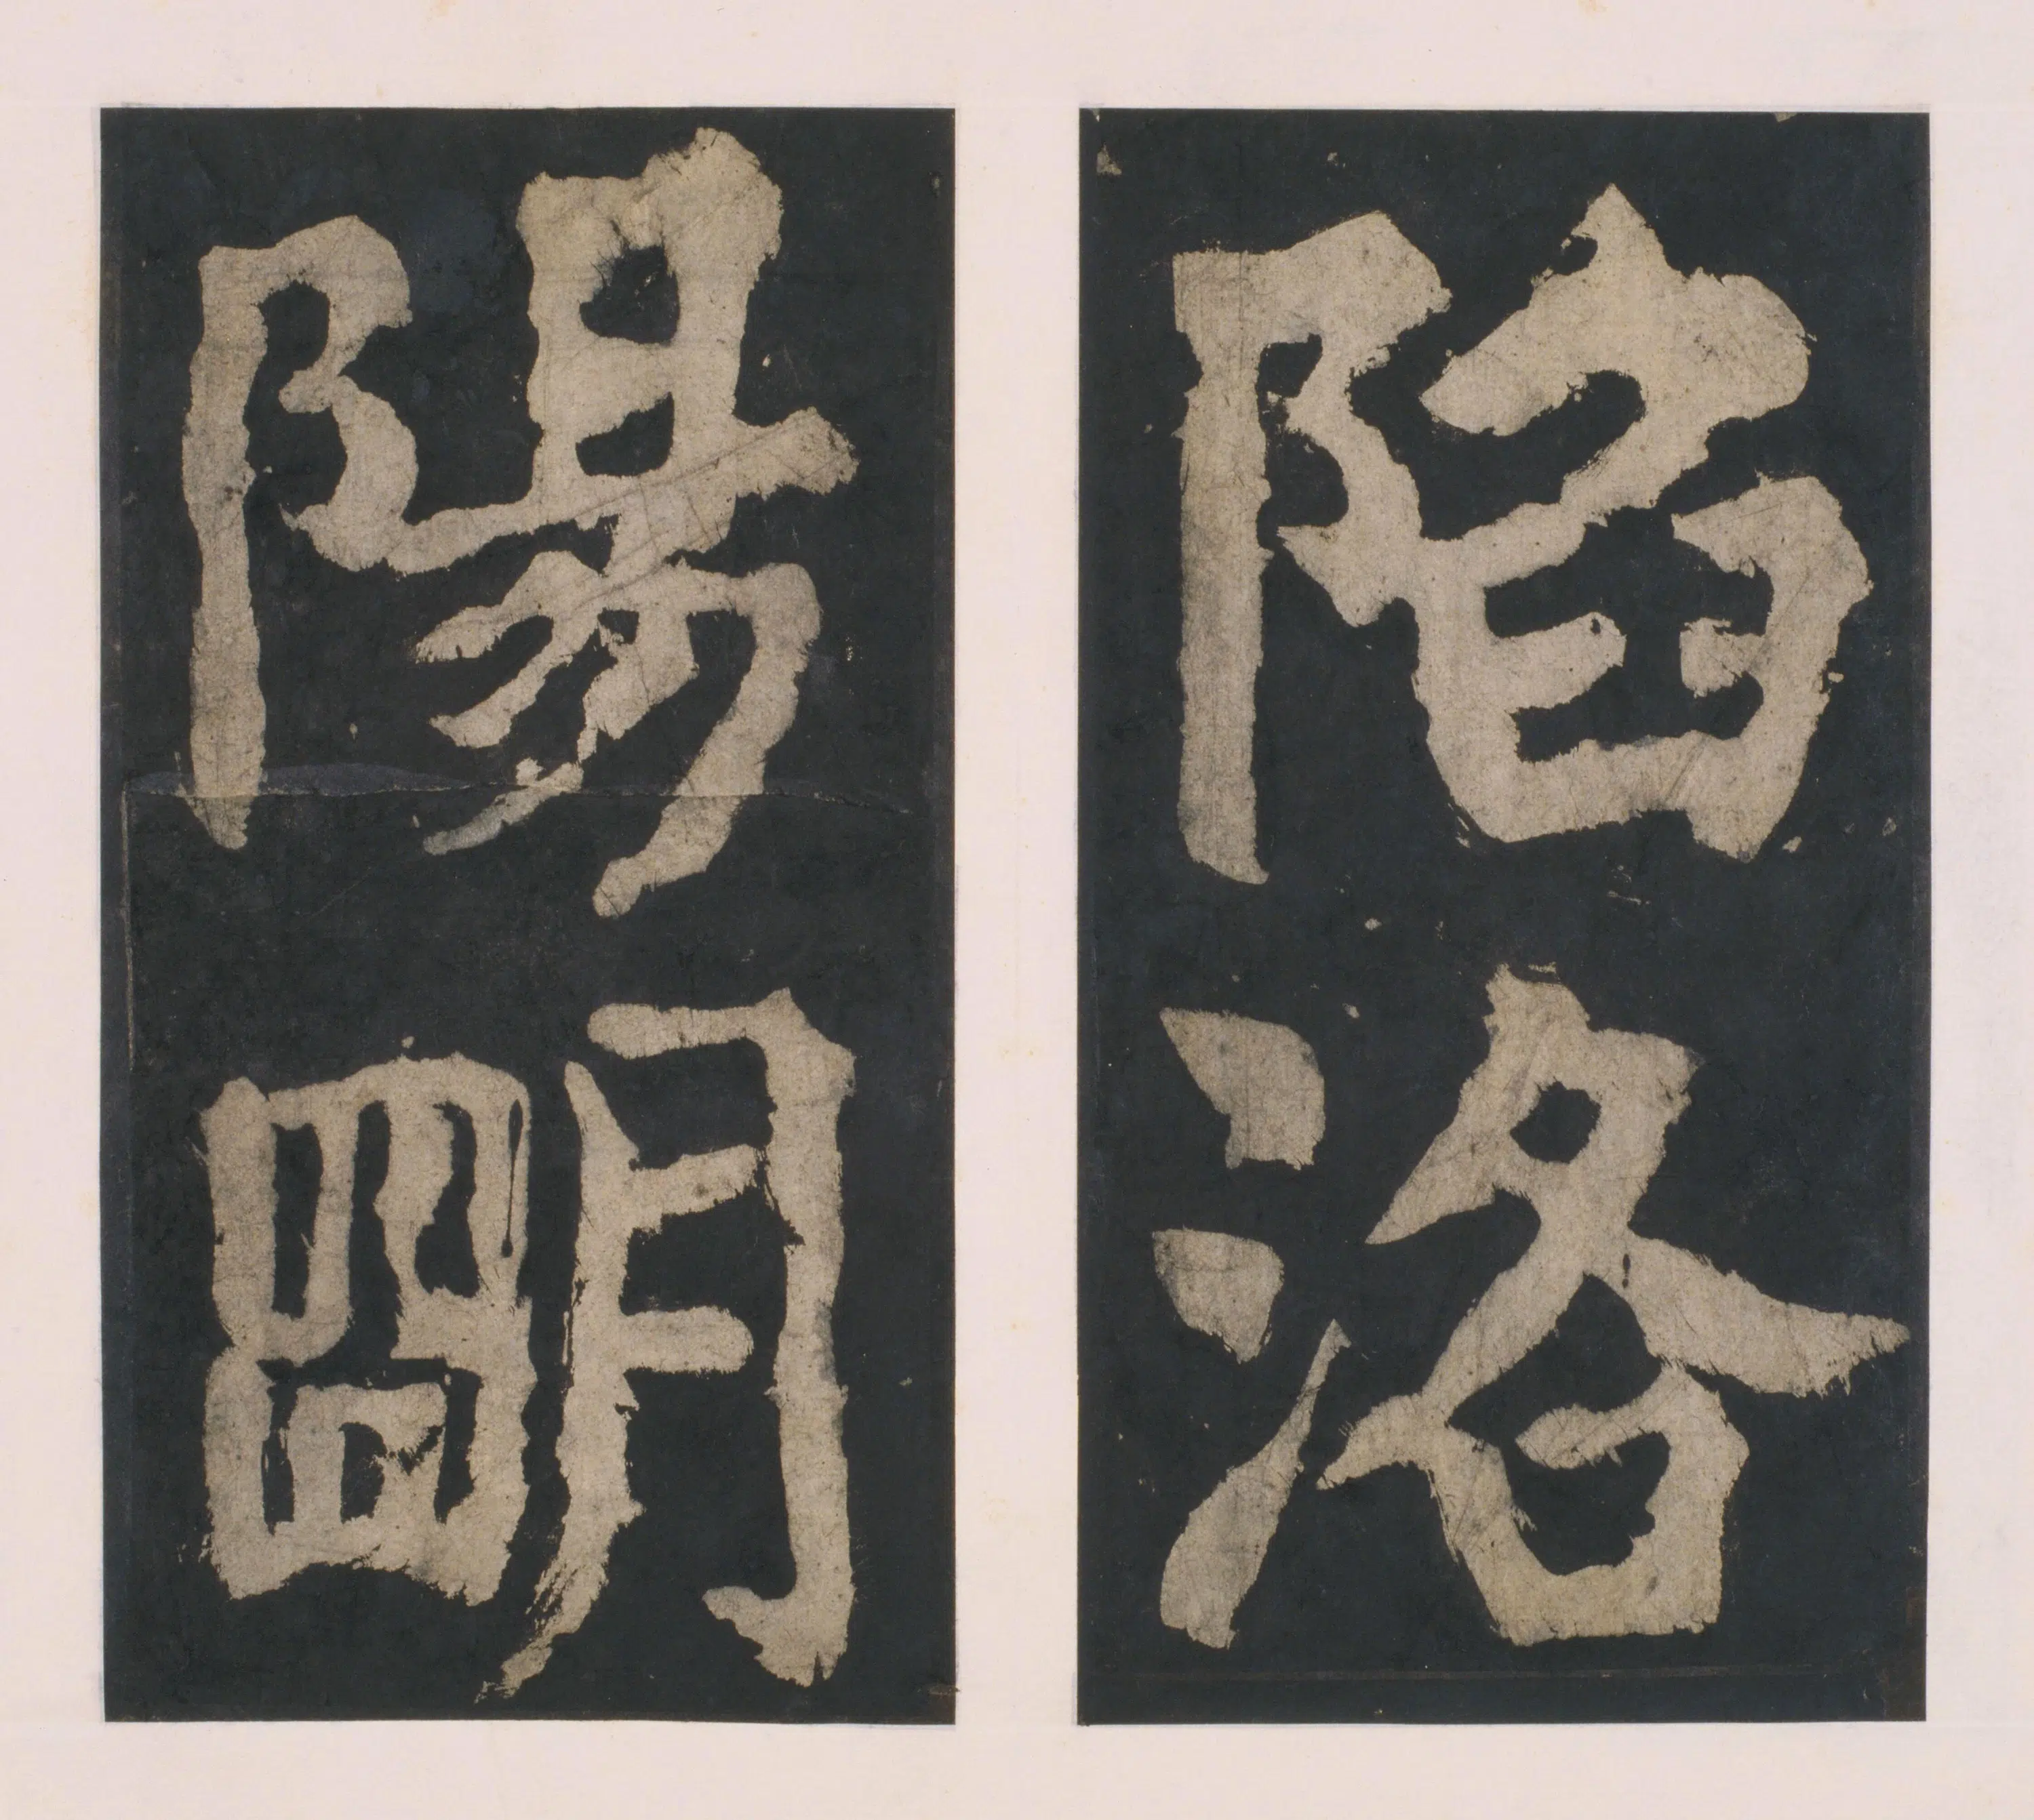 陷洛
陽朙